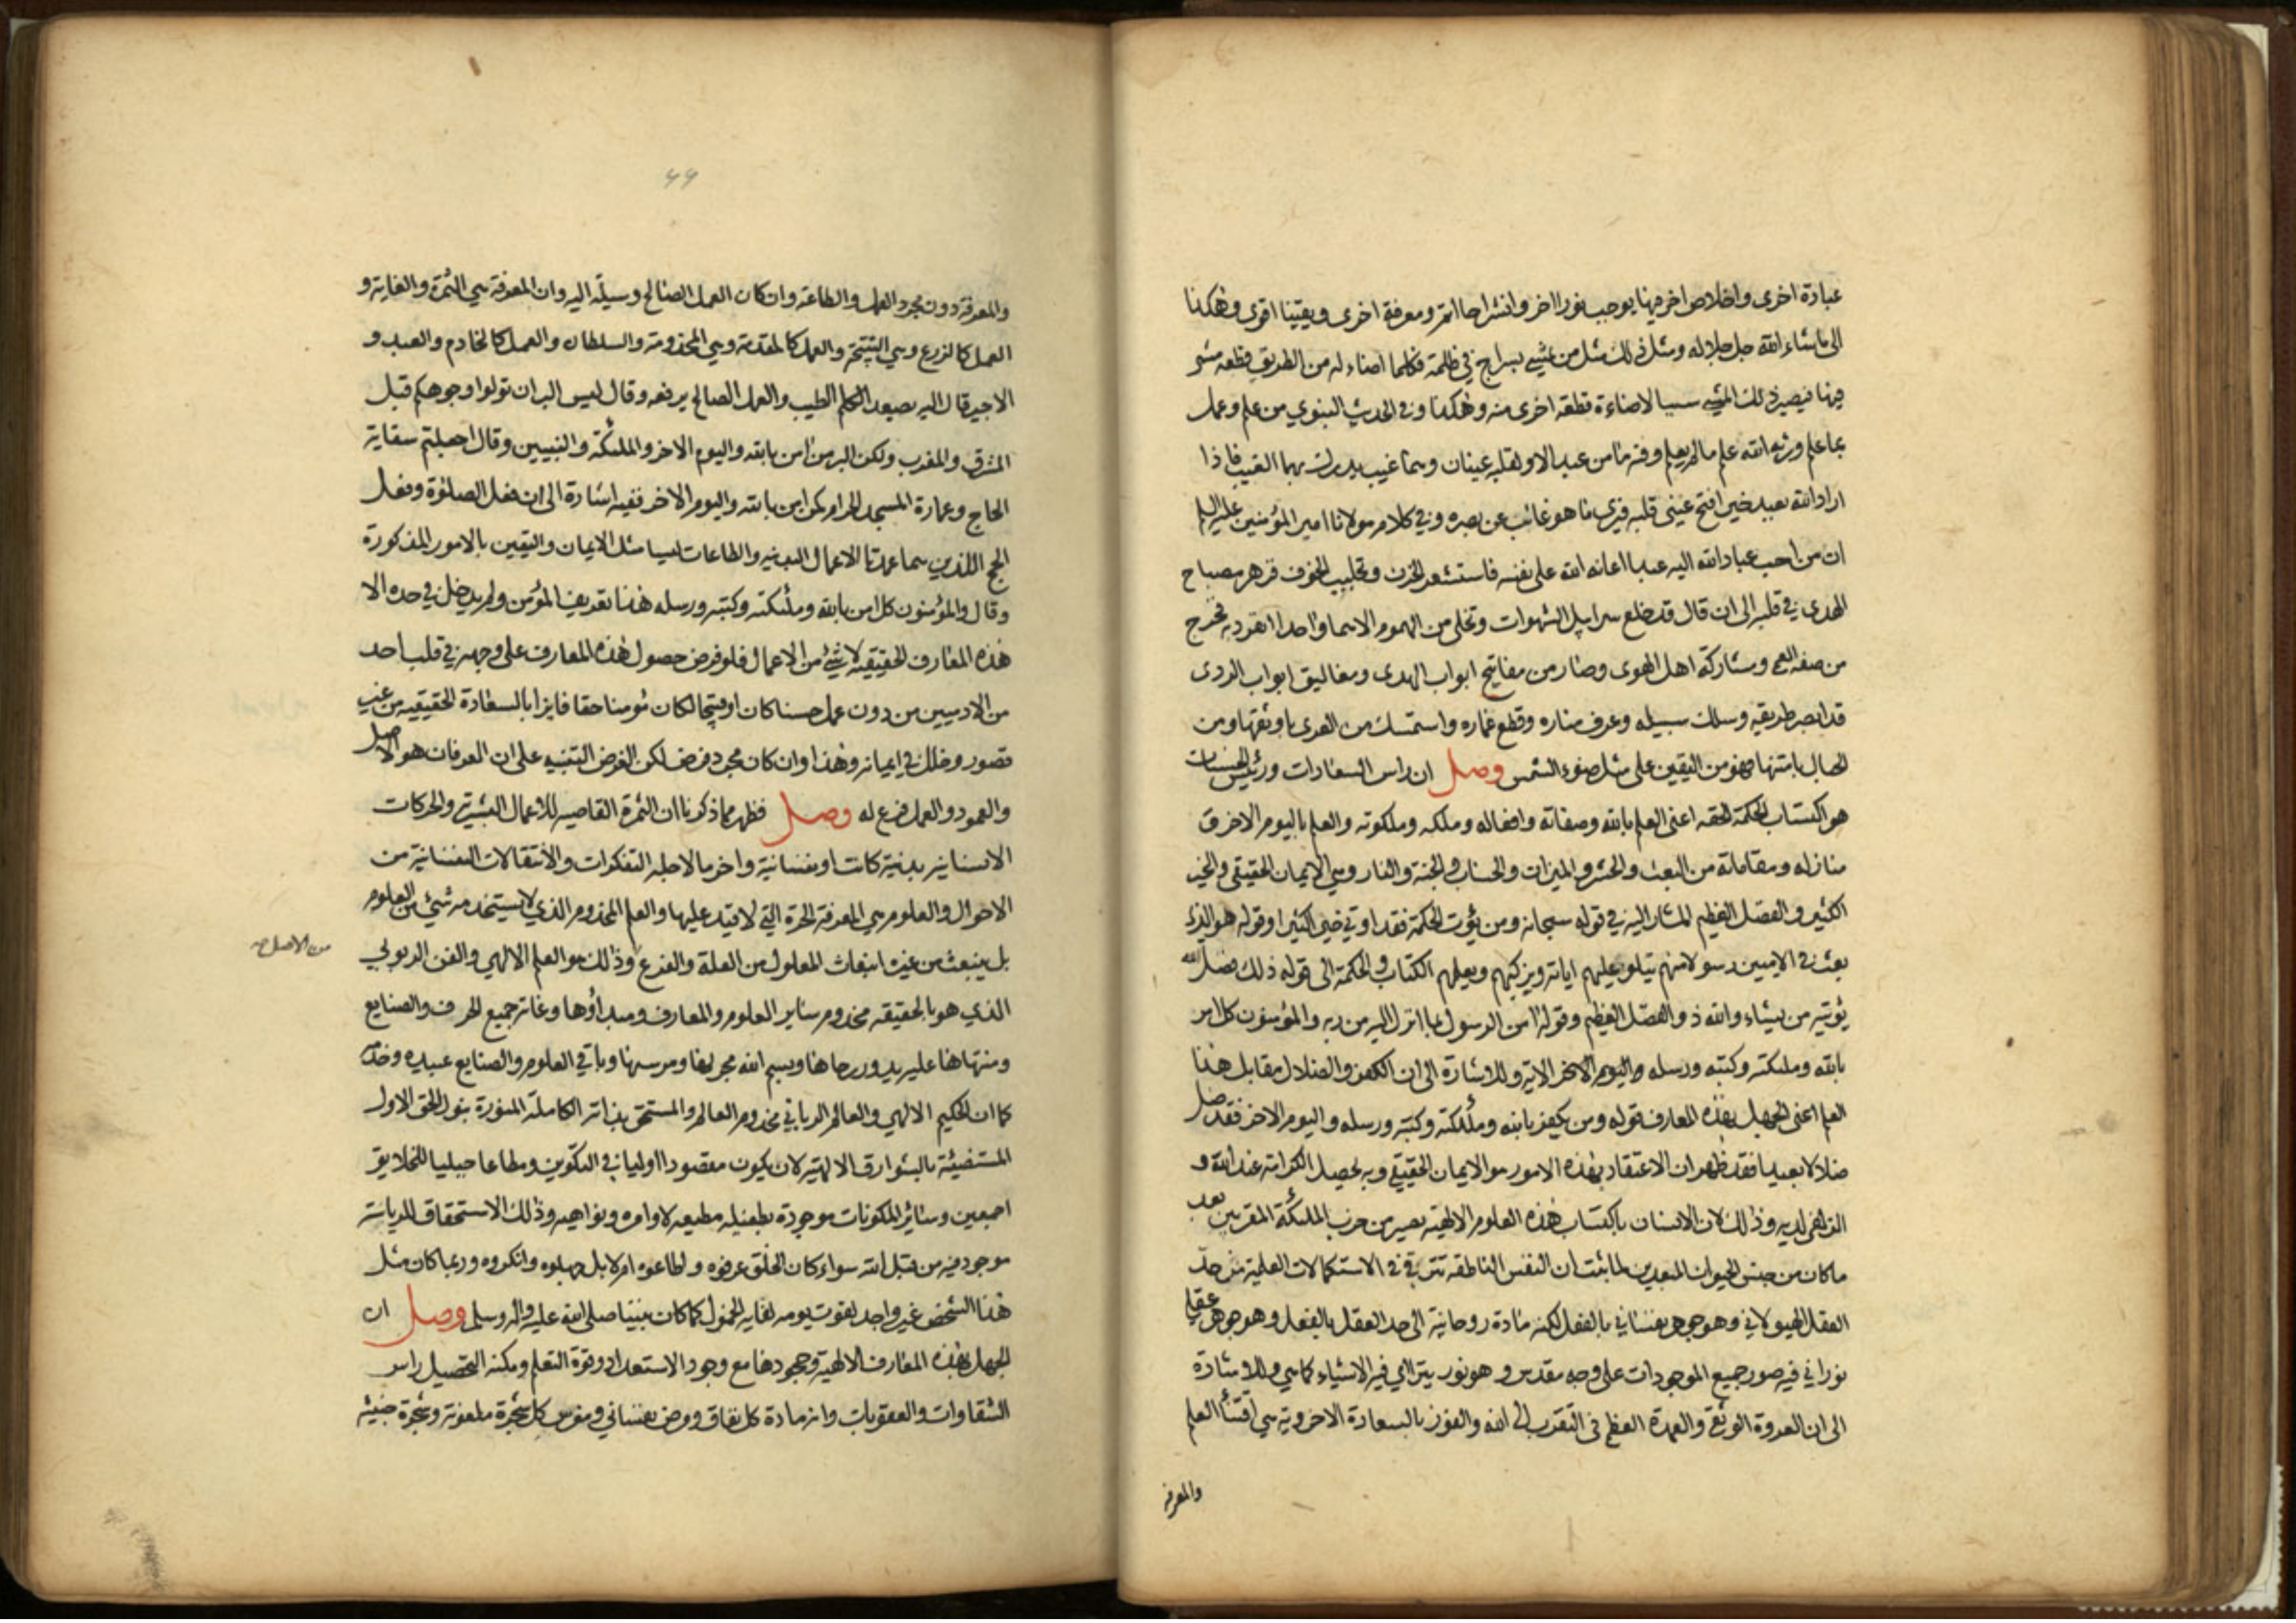 عبادة اخرى واخلاص اخر فيها يوجب نورا اخر وانشراحا اتم ومعرفة اخرى ويقينا اقوى وهكذا
الى ما شاء الله جل جلاله ومثل ذلك مثل من يمشي بسراج في ظلمة فكلما اضاء له من الطريق قطعه مشى
فيها فيصير ذلك المشي سببا لاضاءة قطعه اخرى منه وهكذا وفي الحديث النبوي من علم وعمل
بما علم ورثه الله علم ما لم يعلم وفيه ما من عبد الا ولقلبه عينان وهما غيب يدرك بهما الغيب فاذا
اراد الله بعبد خيرا فتح عيني قلبه فيرى ما هو غائب عن بصره وفي كلام مولانا امير المؤمنين عليه السلم
ان من احب عباد الله اليه عبدا اعانه الله على نفسه فاستشعر الحزن وتجلبب الخوف فزهر مصباح
الهدى في قلبه الى ان قال قد خلع سرابيل الشهوات وتخلى من الهموم الا هما واحدا انفرد به فخرج
من صفه العمى ومشاركة اهل الهوى وصار من مفاتيح ابواب الهدى ومغاليق ابواب الردى
قد ابصر طريقه وسلك سبيله وعرف مناره وقطع غماره واستمسك من العرى باوثقها ومن
الحبال بامتنها فهو من اليقين على مثل ضوء الشمس وصل ان راس السعادات ورئيس الحسنات
هو اكتساب الحكمة الحقه اعني العلم بالله وصفاته وافعاله وملكه وملكوته والعلم باليوم الاخر و
منازله ومقاماته من البعث والحشر والميزان والحساب والجنة والنار وهي الايمان الحقيقي والخير
الكثير والفضل العظيم المشار اليه في قوله سبحانه ومن يؤت الحكمة فقد اوتي خيرا كثيرا وقوله هو الذي
بعث في الاميين رسولا منهم يتلو عليهم اياته ويزكيهم ويعلمهم الكتاب والحكمة الى قوله ذلك فضل الله
يؤتيه من يشاء والله ذو الفضل العظيم وقوله امن الرسول بما انزل اليه من ربه والمؤمنون كل امن
بالله وملئكته وكتبه ورسله واليوم الاخر الاية وللاشارة الى ان الكفر والضلال مقابل هذا
العلم اعني الجهل بهذه المعارف قوله ومن يكفر بالله وملئكته وكتبه ورسله واليوم الاخر فقد ضل
ضلالا بعيدا فقد ظهر ان الاعتقاد بهذه الامور هو الايمان الحقيقي وبه يحصل الكرامة عند الله و
الزلفى لديه وذلك لان الانسان باكتساب هذه العلوم الالهية يصير من حزب الملئكة المقربين بعد
ما كان من جنس الحيوان المبعدين لما ثبت ان النفس الناطقه تترقى في الاستكمالات العلمية من حد
العقل الهيولاني وهو جوهر نفساني بالفعل لكنه مادة روحانية الى حد العقل بالفعل وهو جوهر عقلي
نوراني فيه صور جميع الموجودات على وجه مقدس وهو نور يترااى فيه الاشياء كما هي وللاشارة
الى ان العروة الوثقى والعمدة العظمى في التقرب الى الله والفوز بالسعادة الاخروية هي اقتناء العلم
والمعرفة
والمعرفة دون مجرد العمل والطاعة وان كان العمل الصالح وسيلة اليه وان المعرفة هي الثمرة والغاية و
العمل كالزرع وهي النتيجة والعمل كالمقدمة وهي المخدومة والسلطان والعمل كالخادم والعبد و
الاجير قال اليه يصعد الكلم الطيب والعمل الصالح يرفعه وقال ليس البر ان تولوا وجوهكم قبل
المشرق والمغرب ولكن البر من امن بالله واليوم الاخر والملئكة والنبيين وقال اجعلتم سقاية
الحاج وعمارة المسجد الحرام كمن امن بالله واليوم الاخر ففيه اشارة الى ان فعل الصلوة وفعل
الحج اللذين هما عمدتا الاعمال البدنية والطاعات ليسا مثل الايمان واليقين بالامور المذكورة
وقال والمؤمنون كل امن بالله وملئكته وكتبه ورسله هذا تعريف المؤمن ولم يدخل في حده الا
هذه المعارف الحقيقيه لا شئ من الاعمال فلو فرض حصول هذه المعارف على وجهه في قلب احد
من الادميين من دون عمل حسنا كان او قبيحا لكان مؤمنا حقا فايزا بالسعادة الحقيقيه من غير
قصور وخلل في ايمانه وهذا وان كان مجرد فرض لكن الغرض التنبيه على ان العرفان هو الاصل
والعمود والعمل فرع له وصل فظهر مما ذكرنا ان الثمرة القاصيه للاعمال البشرية والحركات
الانسانية بدنية كانت او نفسانية واخر ما لاجله التفكرات والانتقالات النفسانية من
الاحوال والعلوم هي المعرفة الحرة التي لا قيد عليها والعلم المخدوم الذي لا يستخدمه شئ من العلوم
بل ينبعث من غيره انبعاث المعلول من العلة والفرع وذلك هو العلم الالهي والفن الربوبي
من الاصل صح
الذي هو بالحقيقه مخدوم ساير العلوم والمعارف ومبداؤها وغاية جميع الحرف والصنايع
ومنتهاها عليه يدور رحاها وبسم الله مجراها ومرسيها وباقي العلوم والصنايع عبيده وخدمه
كما ان الحكيم الالهي والعالم الرباني مخدوم العالم والمستحق بذاته الكاملة المنورة بنور الحق الاول
المستضيئة بالشوارق الالهية لان يكون مقصودا اوليا في التكوين ومطاعا جبليا للخلايق
اجمعين وسائر المكونات موجودة بطفيله مطيعه لاوامره ونواهيه وذلك الاستحقاق للرياسة
موجود فيه من قبل الله سواء كان الخلق عرفوه واطاعوه ام لا بل جهلوه وانكروه وربما كان مثل
هذا الشخص غير واجد لقوت يومه لغاية الخمول كما كان نبينا صلى الله عليه واله وسلم وصل ان
الجهل بهذه المعارف الالهية وجحودها مع وجود الاستعداد وقوة التعلم ومكنه التحصيل راس
الشقاوات والعقوبات وانه مادة كل نفاق ومرض نفساني ومغرس كل شجرة ملعونة وشجرة خبيثه